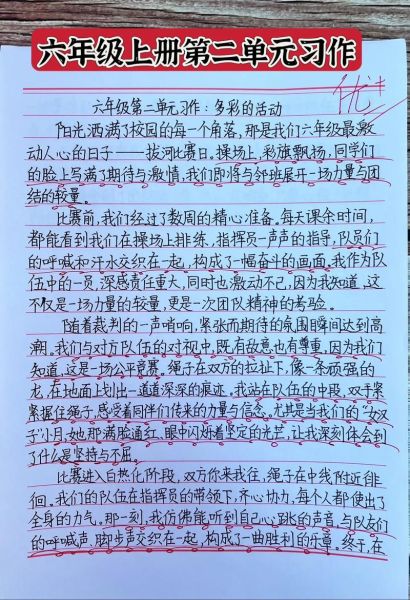 六年级上册第二单元习作
优+
六年级第二单元习作：多彩的活动
阳光洒满了校园的每一个角落，那是我们六年级最激
动人心的日子——拔河比赛日。操场上，彩旗飘扬，同学们
的脸上写满了期待与激情，我们即将与邻班展开一场力量与团
结的较量。
比赛前，我们经过了数周的精心准备。每天课余时间，
都能看到我们在操场上排练，指挥员一声声的指导，队员们
的呼喊和汗水交织在一起，构成了一幅奋斗的画面。我作为队
伍中的一员，深感责任重大，同时也激动不已，因为我知道，这
不仅是一场力量的较量，更是一次团队精神的考验。
随着裁判的一声哨响，紧张而期待的氛围瞬间达到高
潮。我们与对方队伍的对视中，既有敌意也有尊重，因为我们
知道，这是一场公平竞赛。绳子在双方的拉扯下，像一条顽强的
龙，在地面上划出一道道深深的痕迹。我站在队伍的中段，双手紧
紧握住绳子，感受着同伴们传来的力量与信念。尤其是当我们的“女汉
子”小月，她那满脸通红、眼中闪烁着坚定的光芒，让我深刻体会到
了什么是坚持与不屈。
比赛进入白热化阶段，双方你来我往，绳子在中线附近徘
徊。我们的队伍在指挥员的带领下，齐心协力，每个人都使出了
全身的力气。那一刻，我仿佛能听到自己心跳的声音，与队友们
的呼喊声、脚步声交织在一起，构成了一曲胜利的乐章。终于，在